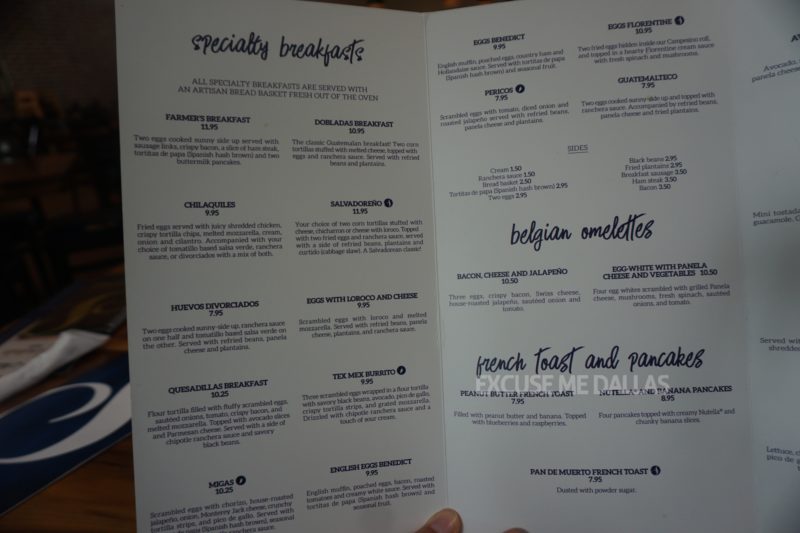 specialty breakfasts
ALL SPECIALTY BREAKFASTS ARE SERVED WITH
AN ARTISAN BREAD BASKET FRESH OUT OF THE OVEN
FARMER'S BREAKFAST
11.95
Two eggs cooked sunny side up served with
sausage links, crispy bacon, a slice of ham steak,
tortitas de papa (Spanish hash brown) and two
buttermilk pancakes.
DOBLADAS BREAKFAST
10.95
The classic Guatemalan breakfast! Two corn
tortillas stuffed with melted cheese, topped with
eggs and ranchera sauce. Served with refried
beans and plantains.
CHILAQUILES
9.95
Fried eggs served with juicy shredded chicken,
crispy tortilla chips, melted mozzarella, cream,
onion and cilantro. Accompanied with your
choice of tomatillo based salsa verde, ranchera
sauce, or divorciados with a mix of both.
SALVADOREÑO
11.95
Your choice of two corn tortillas stuffed with
cheese, chicharron or cheese with loroco. Topped
with two fried eggs and ranchera sauce, served
with a side of refried beans, plantains and
curtido (cabbage slaw). A Salvadorean classic!
HUEVOS DIVORCIADOS
7.95
Two eggs cooked sunny-side up, ranchera sauce
on one half and tomatillo based salsa verde on
the other. Served with refried beans, panela
cheese and plantains.
EGGS WITH LOROCO AND CHEESE
9.95
Scrambled eggs with loroco and melted
mozzarella. Served with refried beans, panela
cheese, plantains, and ranchera sauce.
QUESADILLAS BREAKFAST
10.25
Flour tortilla filled with fluffy scrambled eggs,
sautéed onions, tomato, crispy bacon, and
melted mozzarella. Topped with avocado slices
and Parmesan cheese. Served with a side of
chipotle ranchera sauce and savory
black beans.
TEX MEX BURRITO
9.95
Three scrambled eggs wrapped in a flour tortilla
with savory black beans, avocado, pico de gallo,
crispy tortilla strips, and grated mozzarella.
Drizzled with chipotle ranchera sauce and a
touch of sour cream.
MIGAS
10.25
Scrambled eggs with chorizo, house-roasted
jalapeño, onion, Monterey Jack cheese, crunchy
tortilla strips, and pico de gallo. Served with
tortitas de papa (Spanish hash brown), seasonal
ranchera sauce.
ENGLISH EGGS BENEDICT
9.95
English muffin, poached eggs, bacon, roasted
tomatoes and creamy white sauce. Served with
tortitas de papa (Spanish hash brown) and
seasonal fruit.
EGGS BENEDICT
9.95
English muffin, poached eggs, country ham and
Hollandaise sauce. Served with tortitas de papa
(Spanish hash brown) and seasonal fruit.
EGGS FLORENTINE
10.95
Two fried eggs hidden inside our Campesino roll,
and topped in a hearty Florentine cream sauce
with fresh spinach and mushrooms.
PERICOS
7.95
Scrambled eggs with tomato, diced onion and
roasted jalapeño served with refried beans,
panela cheese and plantains.
GUATEMALTECO
7.95
Two eggs cooked sunny-side up and topped with
ranchera sauce. Accompanied by refried beans,
panela cheese and fried plantains.
SIDES
Cream 1.50
Ranchera sauce 1.50
Bread basket 2.50
Tortitas de papa (Spanish hash brown) 2.95
Two eggs 2.95
Black beans 2.95
Fried plantains 2.95
Breakfast sausage 3.50
Ham steak 3.50
Bacon 3.50
belgian omelettes
BACON, CHEESE AND JALAPEÑO
10.50
Three eggs, crispy bacon, Swiss cheese,
house-roasted jalapeño, sautéed onion and
tomato.
EGG-WHITE WITH PANELA
CHEESE AND VEGETABLES 10.50
Four egg whites scrambled with grilled Panela
cheese, mushrooms, fresh spinach, sautéed
onions, and tomato.
french toast and pancakes
EXCUSE ME DALLAS
PEANUT BUTTER FRENCH TOAST
7.95
Filled with peanut butter and banana. Topped
with blueberries and raspberries.
NUTELLA® AND BANANA PANCAKES
8.95
Four pancakes topped with creamy Nutella® and
chunky banana slices.
PAN DE MUERTO FRENCH TOAST
7.95
Dusted with powder sugar.
Avocado,
panela cheese
Mini tostada
guacamole,
Served wit
shredde
Lettuce, c
pico de g